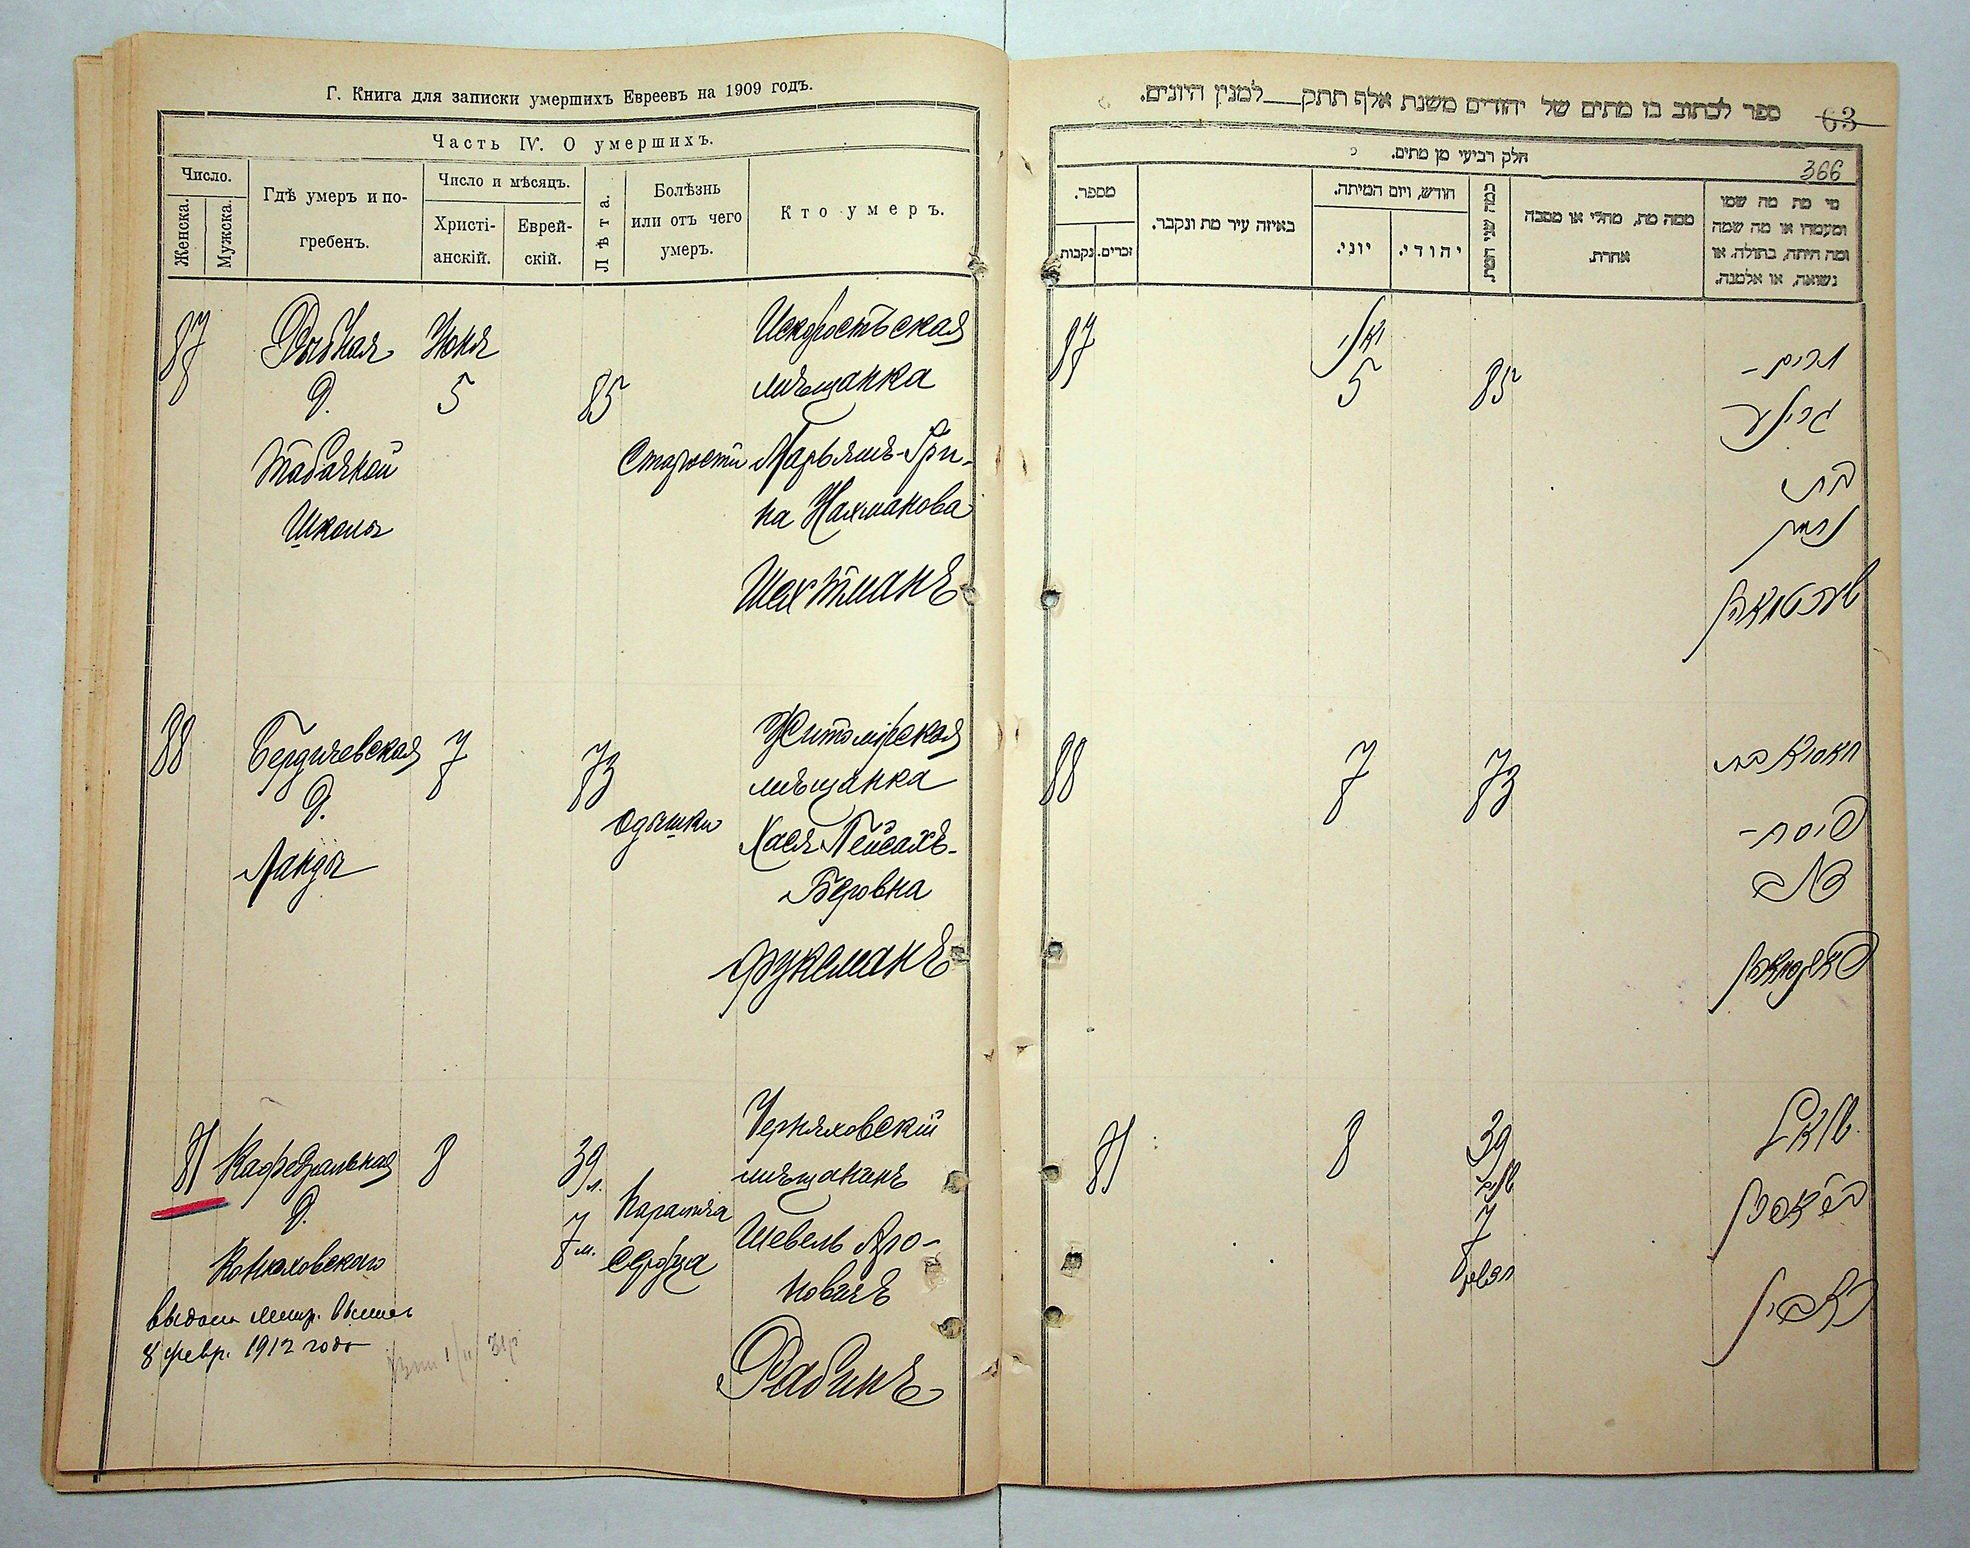 Г. Книга для записки умершихъ Евреевъ на 1909 годъ.
Часть IV. О умершихъ.
Число.
Женска.
Мужска.
Гдѣ умеръ и по-
гребенъ.
Число и мѣсяцъ.
Христі-
анскій.
Еврей-
скій.
Лѣта.
Болѣзнь
или отъ чего
умеръ.
Кто умеръ.
87
Рыбная
д.
Табачной
Школы
Июня
5
85
Старости
Искоростьская
мѣщанка
Марьямъ-Гри-
на Нахманова
Шахтманъ
88
Бердичевская
д.
Ланды
7
73
одышки
Житомірская
мѣщанка
Хася Пейсахъ-
Беровна
Фуксманъ
81
Кафедральная
д.
Конюховского
8
39 л.
7 м.
Паралича
сердца
Черняховскій
мѣщанинъ
Шевель Аро-
новичъ
Рабинъ
8 февр. 1912 года
ספר לכתוב בו מתים של יהודים משנת אלף תתק___למנין היונים.
63
366
חלק רביעי מן מתים.
מספר.
נקבות
זכרים.
באיזה עיר מת ונקבר.
חודש, ויום המיתה.
יוני.
יהודי.
כמה שני המת.
ממה מת, מחלי או מסבה
אחרת.
מי מת מה שמו
ומעמדו או מה שמה
ומה היתה, בתולה. או
נשואה, או אלמנה.
87
יוני
5
85
מרים-
גרינע
בת
נחמן
שאכטמאן
88
7
73
חאסיא בת
פייסח-
בער
פוקסמאן
81
8
39
7
שעוול
ראבין